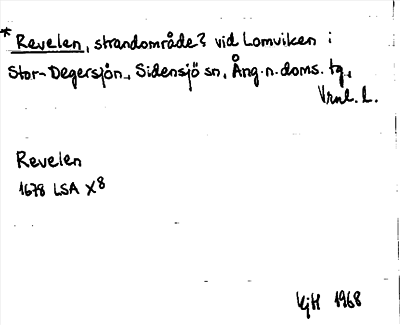 * Revelen, strandområde? vid Lomviken i
Stor-Degersjön, Sidensjö sn, Ång.n.doms. tg,
Vrnl. L.
Revelen
1678 LSA X8
KjH 1968